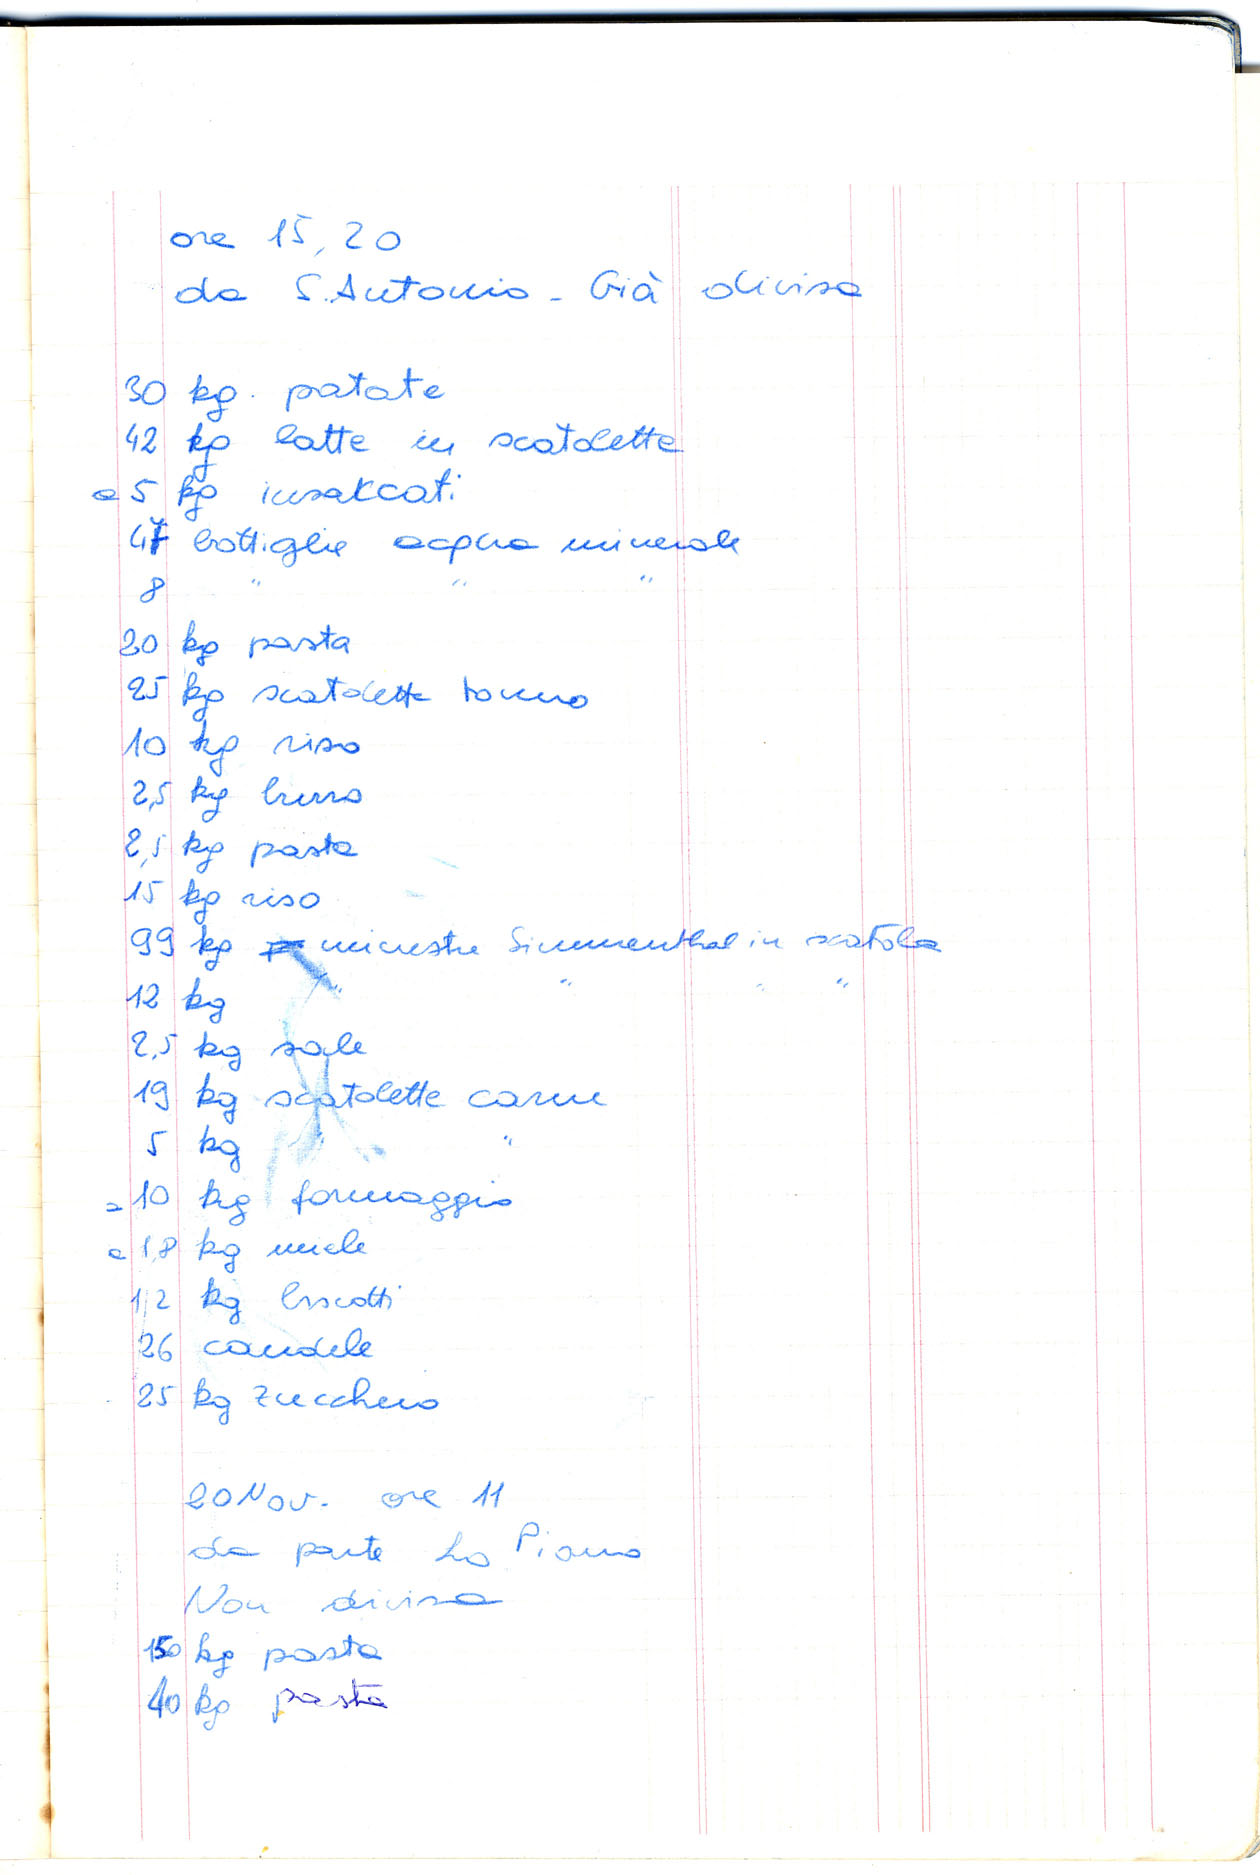 ore 15,20
da S. Antonio - Già divisa
30 kg. patate
42 kg latte in scatolette
5 kg insaccati
47 bottiglie acqua minerale
8 " " "
20 kg pasta
25 kg scatolette tonno
10 kg riso
2,5 kg burro
2,5 kg pasta
15 kg riso
99 kg minestre Simmenthal in scatola
12 kg " " " "
2,5 kg sale
19 kg scatolette carne
5 kg " "
10 kg formaggio
1,8 kg miele
1,2 kg biscotti
26 candele
25 kg zucchero
20 Nov. ore 11
da parte Lo Piano
Non divisa
150 kg pasta
40 kg pasta